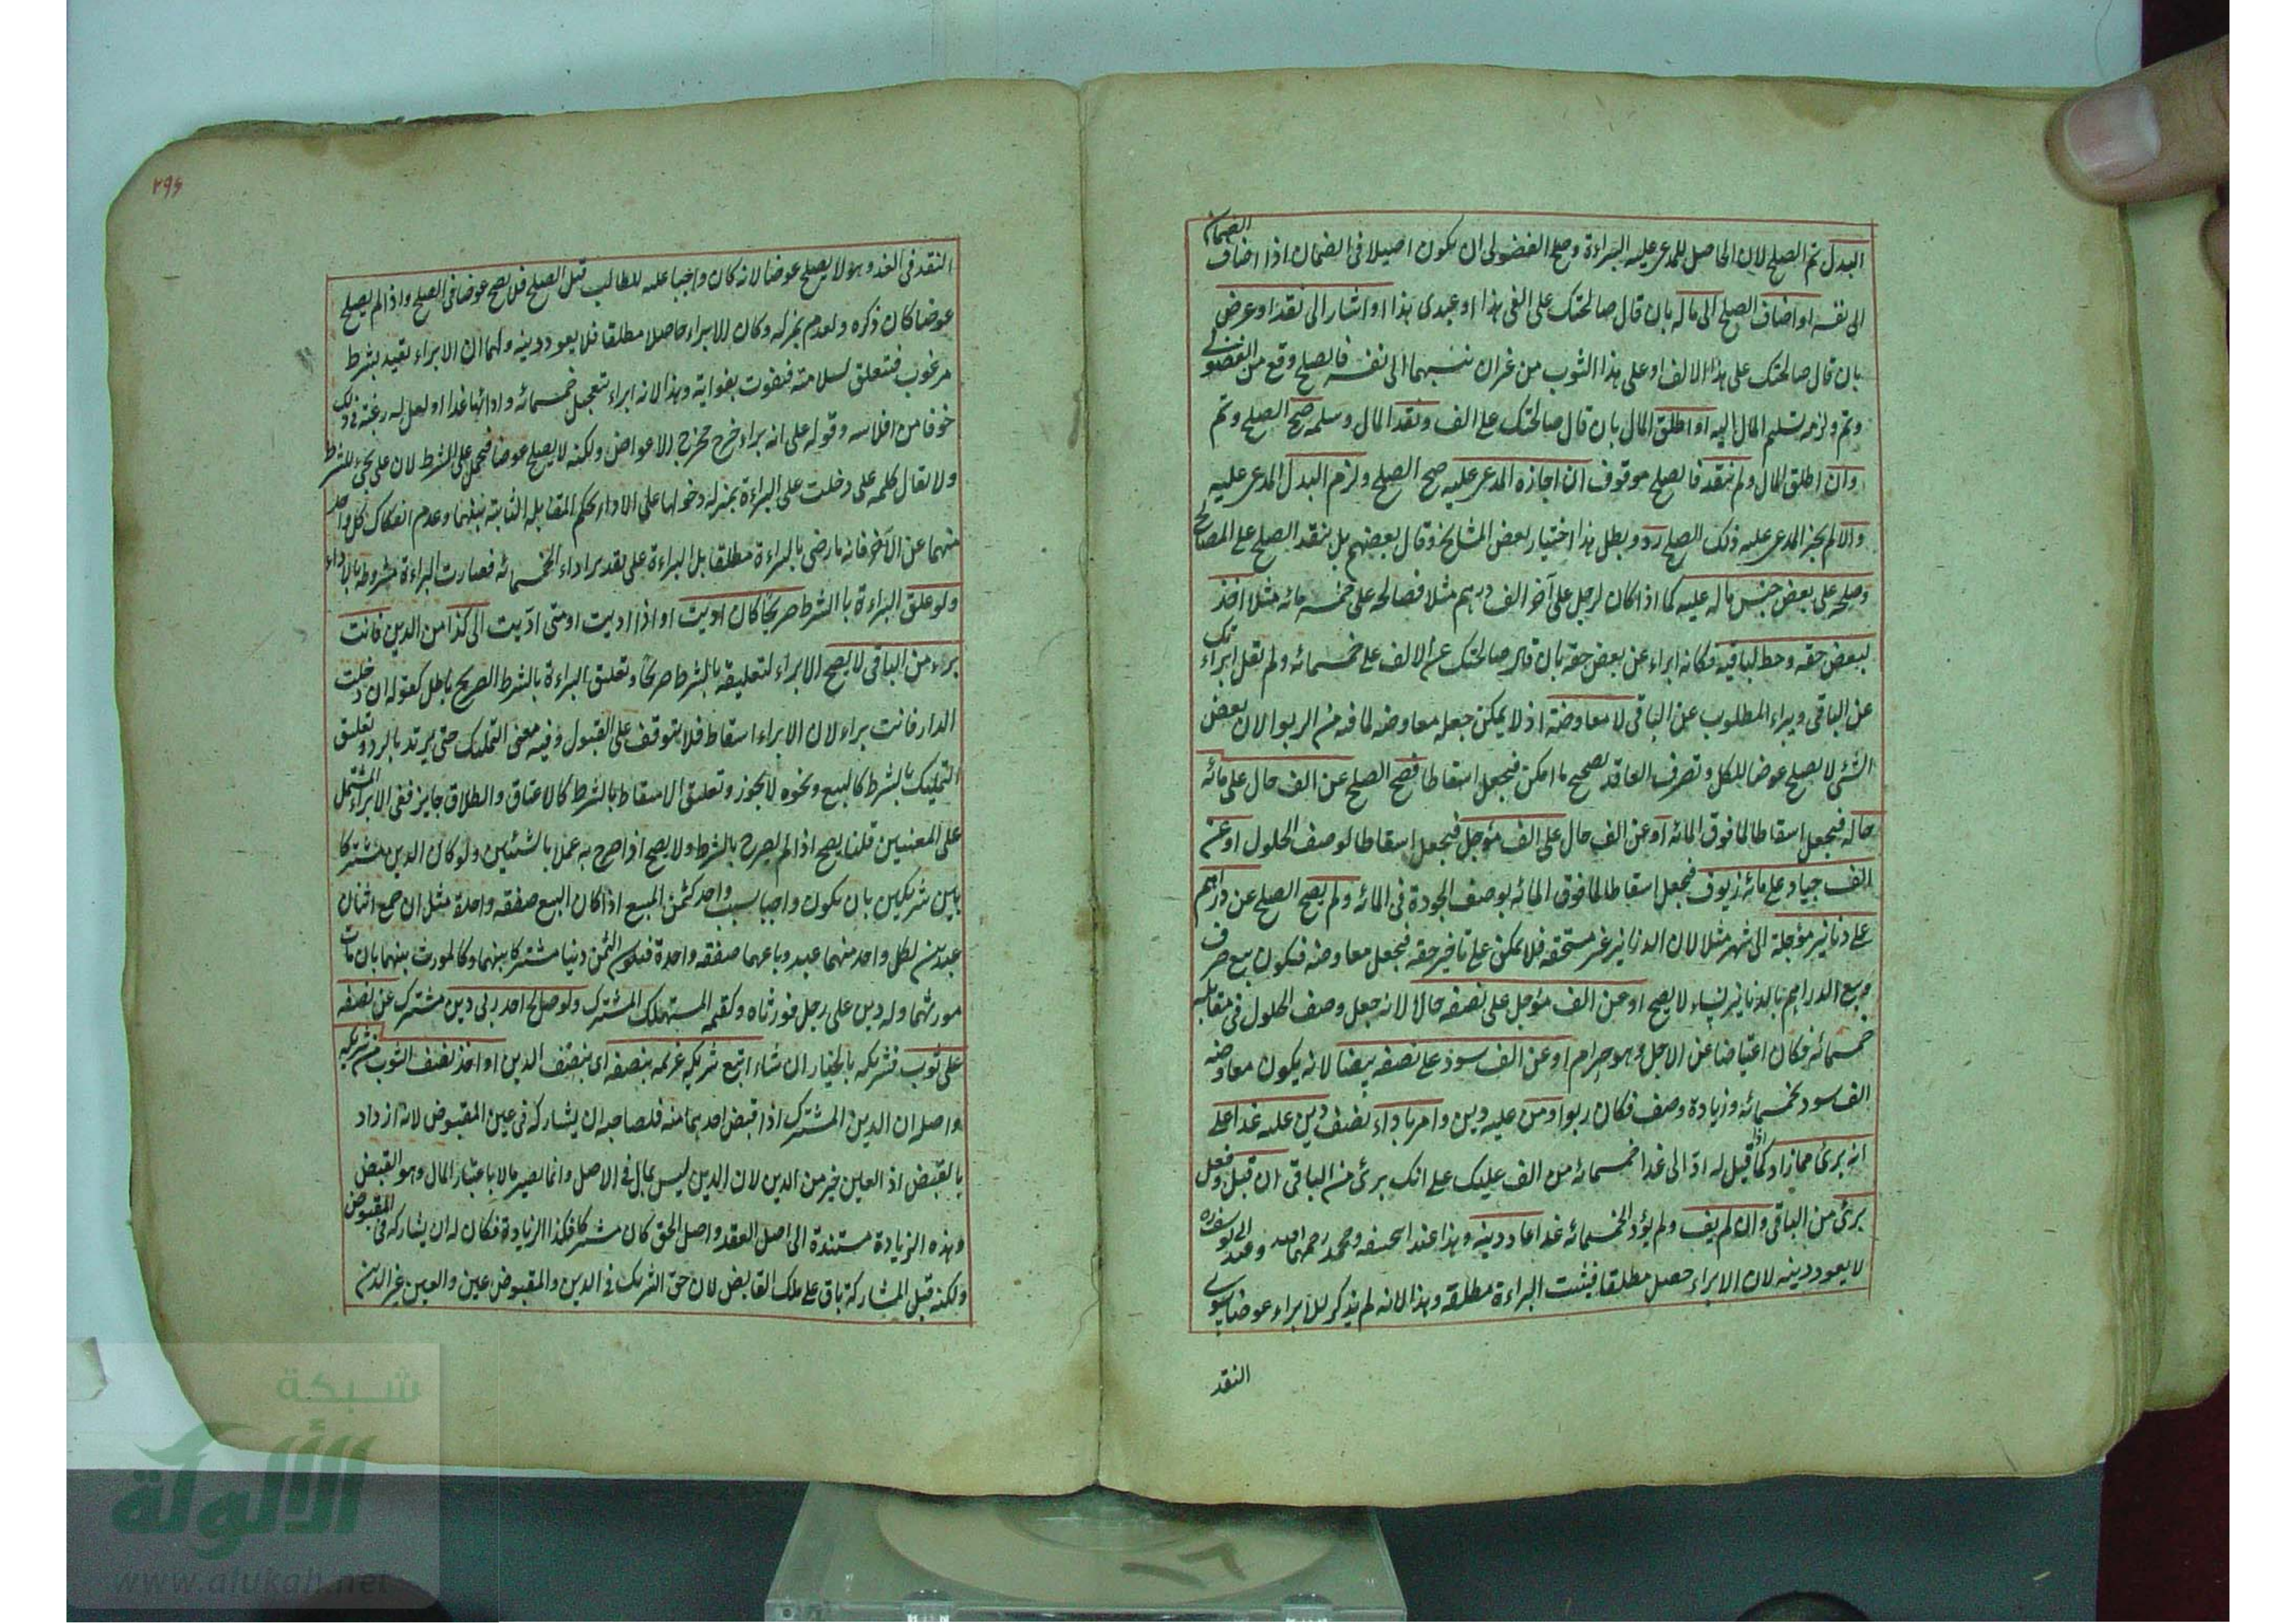 البدل تم الصلح لان الحاصل للمدعى عليه البراءة وصلح الفضولى ان يكون اصيلا فى الضمان اذا اضاف الضمان
الى نفسه او اضاف الصلح الى ماله بان قال صالحتك على الفى هذا او عبدى هذا او اشار الى نقد او عرض
بان قال صالحتك على هذا الالف او على هذا الثوب من غير ان ينسبهما الى نفسه فالصلح وقع من الفضولى
وتم ولزمه تسليم المال اليه او اطلق المال بان قال صالحتك على الف ونقد المال وسلمه صح الصلح وتم
وان اطلق المال ولم ينقد فالصلح موقوف ان اجازه المدعى عليه صح الصلح ولزم البدل المدعى عليه
والا لم يجز المدعى عليه ذلك الصلح رد وبطل هذا اختيار بعض المشايخ وقال بعضهم بل ينقد الصلح على المصالح
وصلحه على بعض جنس ماله عليه كما اذا كان لرجل على آخر الف درهم مثلا فصالحه على خمسمائه مثلا اخذ
لبعض حقه وحط لباقيه فكانه ابراء عن بعض حقه بان قال صالحتك عن الالف على خمسمائه ولم يقل ابرأتك
عن الباقى ويبراء المطلوب عن الباقى لا معاوضة اذ لا يمكن جعله معاوضه لما فيه من الربوا لان بعض
الشئ لا يصلح عوضا للكل وتصرف العاقد يصحح ما امكن فيجعل اسقاطا فصح الصلح عن الف حال على مائه
حاله فيجعل اسقاطا لما فوق المائه او عن الف حال على الف مؤجل فيجعل اسقاطا لوصف الحلول او عن
الف جياد على مائه زيوف فيجعل اسقاطا لما فوق المائه بوصف الجودة فى المائه ولم يصح الصلح عن دراهم
على دنانير مؤجلة الى شهر مثلا لان الدنانير غير مستحقه فلا يمكن على تاخير حقه فيجعل معاوضه فيكون بيع صرف
وبيع الدراهم بالدنانير نساء لا يصح او عن الف مؤجل على نصفه حالا لانه جعل وصف الحلول فى مقابله
خمسمائه فكان اعتياضا عن الاجل وهو حرام او عن الف سود على نصفه بيضا لانه يكون معاوضه
الف سود بخمسمائه وزيادة وصف فكان ربوا ومن عليه دين وامر باداء نصف دين عليه غدا على
انه برئ مما زاد كما اذا قيل له ادّ الى غدا خمسمائه من الف عليك على انك برئ من الباقى ان قبل وفعل
برئ من الباقى وان لم يف ولم يؤد الخمسمائه غدا عاد دينه وهذا عند ابيحنيفه ومحمد رحمهما الله وعند ابى يوسف ره
لا يعود دينه لان الابراء حصل مطلقا فيثبت البراءة مطلقه وهذا لانه لم يذكر للابراء عوضا سوى
النقد
٢٩٤
النقد فى الغد وهو لا يصلح عوضا لانه كان واجبا عليه للطالب قبل الصلح فلن يصح عوضا فى الصلح واذا لم يصلح
عوضا كان ذكره وعدم بمنزله وكان الابراء حاصلا مطلقا فلا يعود دينه ولهما ان الابراء تقيد بشرط
مرغوب فتعلق لسلامته فيفوت بفواته وهذا لانه ابراء بتعجيل خمسمائه وادائها غدا او لعل له رغبة فى ذلك
خوفا من افلاسه وقوله على انه براء خرج مخرج الاعواض ولكنه لا يصلح عوضا فيحمل على الشرط لان على يجئ للشرط
ولا يقال كلمه على دخلت على البراءة بمنزله دخولها على الاداء بحكم المقابله الثابته بينهما وعدم انفكاك كل واحد
منهما عن الآخر فانه ما رضى بالبراءة مطلقا بل البراءة على تقدير اداء الخمسمائه فصارت البراءة مشروطه بالاداء
ولو علق البراءة با الشرط صريحا كان اديت او اذا اديت او متى ادّيت الى كذا من الدين فانت
براء من الباقى لا يصح الابراء لتعليقه بالشرط صريحا وتعليق البراءة بالشرط الصريح باطل كقوله ان دخلت
الدار فانت براء لان الابراء اسقاط فلا يتوقف على القبول وفيه معنى التمليك حتى يرتد بالرد وتعليق
التمليك بالشرط كالبيع ونحوه لا يجوز وتعليق الاسقاط بالشرط كالاعتاق والطلاق جايز ففى الابراء المشتمل
على المعنيين قلنا يصح اذا لم يصرح بالشرط ولا يصح اذا صرح به عملا بالشيئين ولو كان الدين مشتركا
بين شريكين بان يكون واجبا بسبب واحد كثمن المبيع اذا كان البيع صفقه واحدة مثل ان جمع اثنان
عبدين لكل واحد منهما عبد وباعهما صفقه واحدة فيكون الثمن دينا مشتركا بينهما وكالمورث بينهما بان مات
مورثهما وله دين على رجل فورثاه وكقيمه المستهلك المشترك ولو صالح احد ربى دين مشترك عن نصفه
على ثوب فشريكه بالخيار ان شاء اتبع شريكه غريمه بنصفه اى بنصف الدين او اخذ نصف الثوب من شريكه
واصله ان الدين المشترك اذا قبض احدهما منه فلصاحبه ان يشاركه فى عين المقبوض لانه ازداد
بالقبض اذ العين خير من الدين لان الدين ليس بمال فى الاصل وانما يصير مالا باعتبار المال وهو القبض
وهذه الزيادة مستندة الى اصل العقد واصل الحق كان مشتركا فكذا الزيادة فكان له ان يشاركه فى المقبوض
ولكنه قبل المشاركة باق على ملك القابض لان حق الشريك فى الدين والمقبوض عين والعين غير الدين
شبكة
الألوكة
www.alukah.net